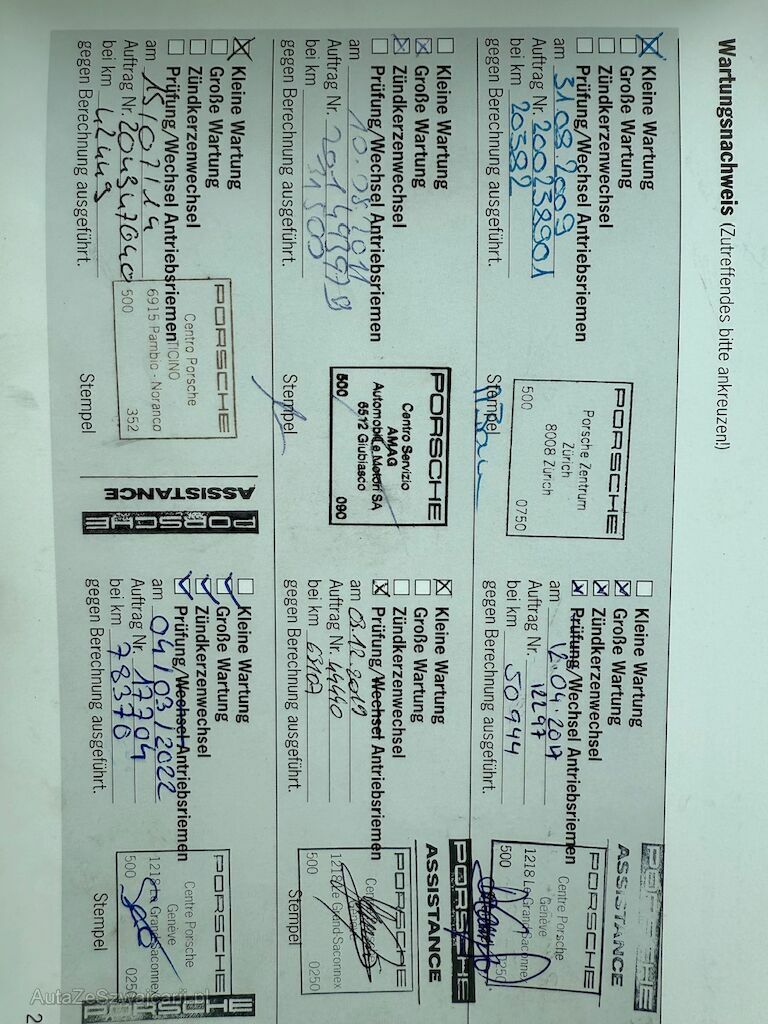 Wartungsnachweis (Zutreffendes bitte ankreuzen!)
Kleine Wartung
Große Wartung
Zündkerzenwechsel
Prüfung/Wechsel Antriebsriemen
am 31 08 2009
Auftrag Nr. 200238901
bei km 20382
gegen Berechnung ausgeführt.
Stempel
PORSCHE
Porsche Zentrum
Zürich
8008 Zürich
500 0750
Kleine Wartung
Große Wartung
Zündkerzenwechsel
Prüfung/Wechsel Antriebsriemen
am 12.04.2017
Auftrag Nr. 12297
bei km 50944
gegen Berechnung ausgeführt.
ASSISTANCE
PORSCHE
Centre Porsche
Genève
1218 Le Grand-Saconnex
500 0250
Kleine Wartung
Große Wartung
Zündkerzenwechsel
Prüfung/Wechsel Antriebsriemen
am 10.08.2011
Auftrag Nr.
bei km 31500
gegen Berechnung ausgeführt.
Stempel
PORSCHE
Centro Servizio
AMAG
Automobili e Motori SA
6512 Giubiasco
500 090
Kleine Wartung
Große Wartung
Zündkerzenwechsel
Prüfung/Wechsel Antriebsriemen
am 03.12.2019
Auftrag Nr. 44440
bei km 68107
gegen Berechnung ausgeführt.
Stempel
PORSCHE
ASSISTANCE
PORSCHE
1218 Le Grand-Saconnex
500 0250
Kleine Wartung
Große Wartung
Zündkerzenwechsel
Prüfung/Wechsel Antriebsriemen
am 15/07/14
Auftrag Nr. 204347040
bei km 42449
gegen Berechnung ausgeführt.
Stempel
PORSCHE
Centro Porsche
TICINO
6915 Pambio - Noranco
500 352
PORSCHE
ASSISTANCE
Kleine Wartung
Große Wartung
Zündkerzenwechsel
Prüfung/Wechsel Antriebsriemen
am 04/03/2022
Auftrag Nr. 17704
bei km 78370
gegen Berechnung ausgeführt.
Stempel
PORSCHE
Centre Porsche
Genève
1218 Le Grand-Saconnex
500 0250
PORSCHE
2
AutaZeSzwajcarii.pl